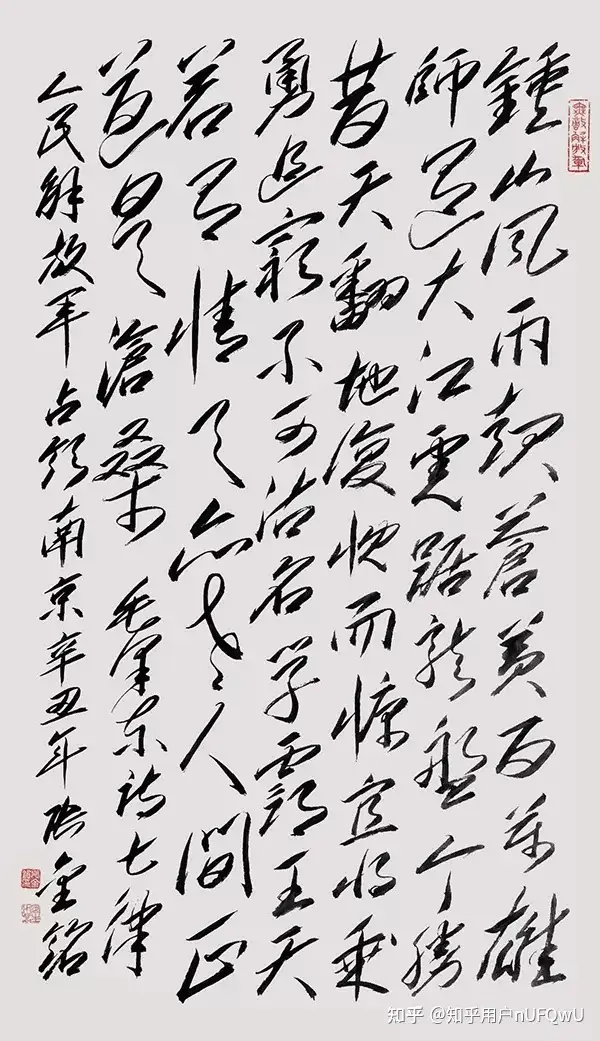 鍾山风雨起蒼黄百万雄
師過大江虎踞龍盤今勝
昔天翻地復慨而慷宜将乘
勇追窮不可沽名学霸王天
若有情天亦老人間正
道是滄桑 毛泽东诗七律
人民解放军占领南京辛丑年张金铭
知乎 @知乎用户nUFQwU